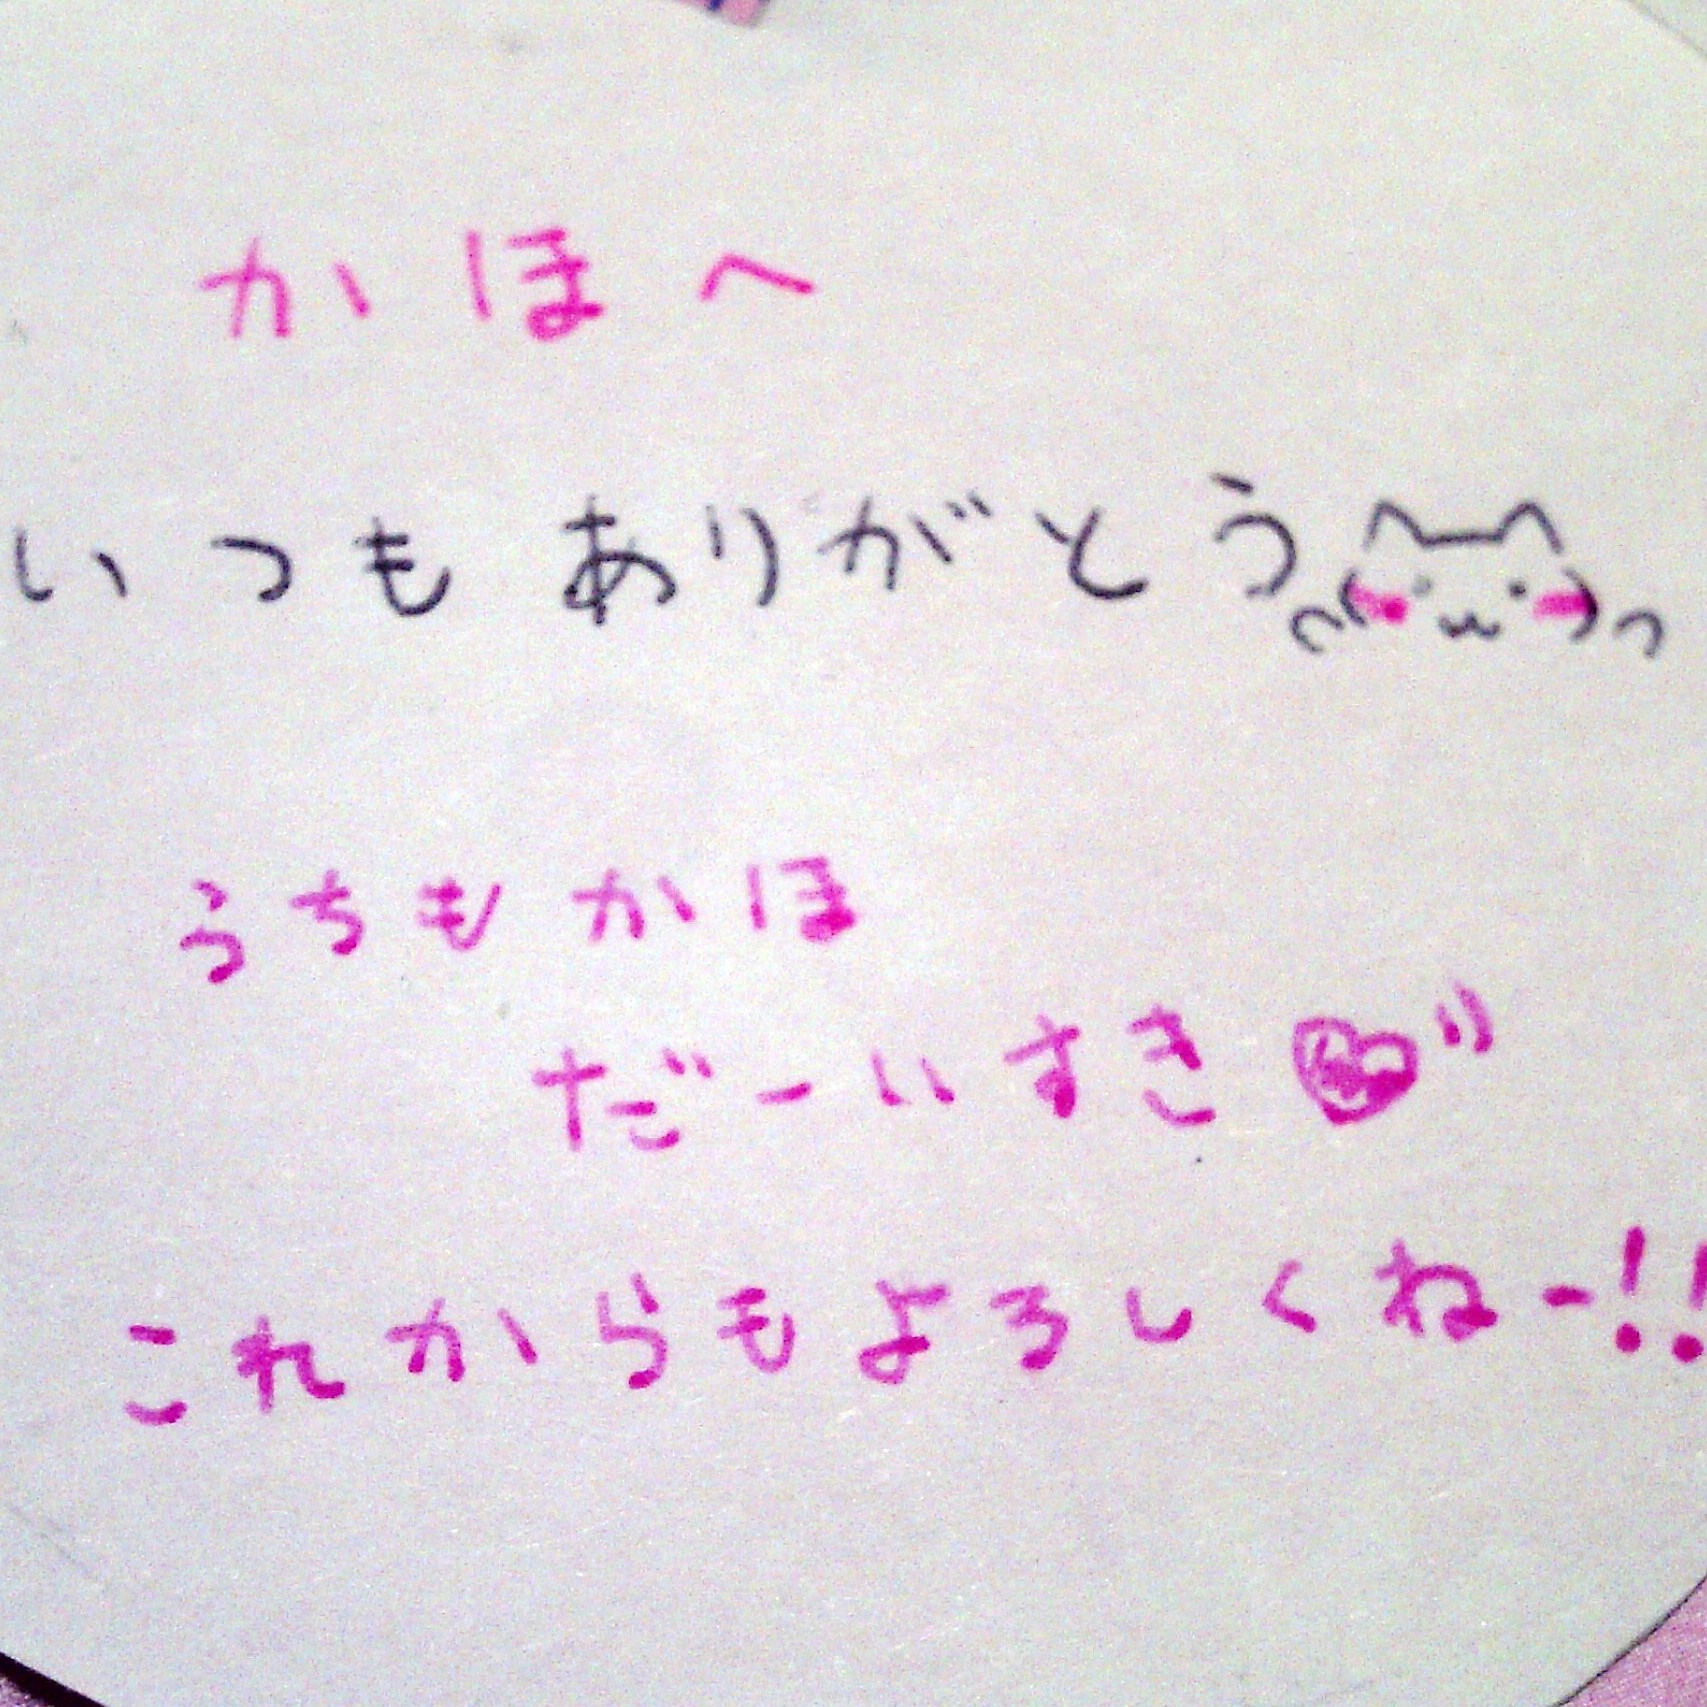 かほへ
いつもありがとう
うちもかほ
だーいすき♡
これからもよろしくねー!!